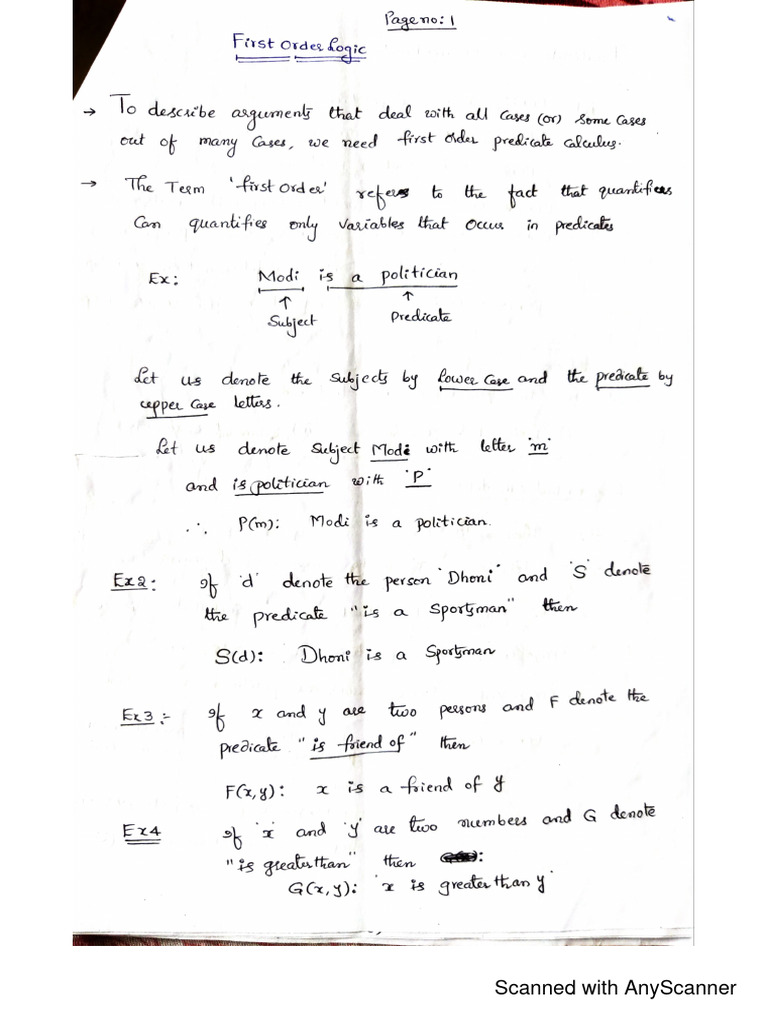 Page no: 1
First Order Logic
→ To describe arguments that deal with all cases (or) some cases
out of many cases, we need first order predicate calculus.
→ The Term 'first order' refers to the fact that quantifiers
Can quantifies only variables that occur in predicates
Ex: Modi is a politician
↑ ↑
Subject Predicate
Let us denote the subjects by lower case and the predicate by
upper case letters.
Let us denote subject Modi with letter 'm'
and is politician with 'P'
∴ P(m): Modi is a politician.
Ex2: If 'd' denote the person "Dhoni" and 'S' denote
the predicate "is a Sportsman" then
S(d): Dhoni is a Sportsman
Ex3:- If x and y are two persons and F denote the
predicate "is friend of" then
F(x,y): x is a friend of y
Ex4 If 'x' and 'y' are two numbers and G denote
"is greater than" then :
G(x,y): 'x is greater than y'
Scanned with AnyScanner